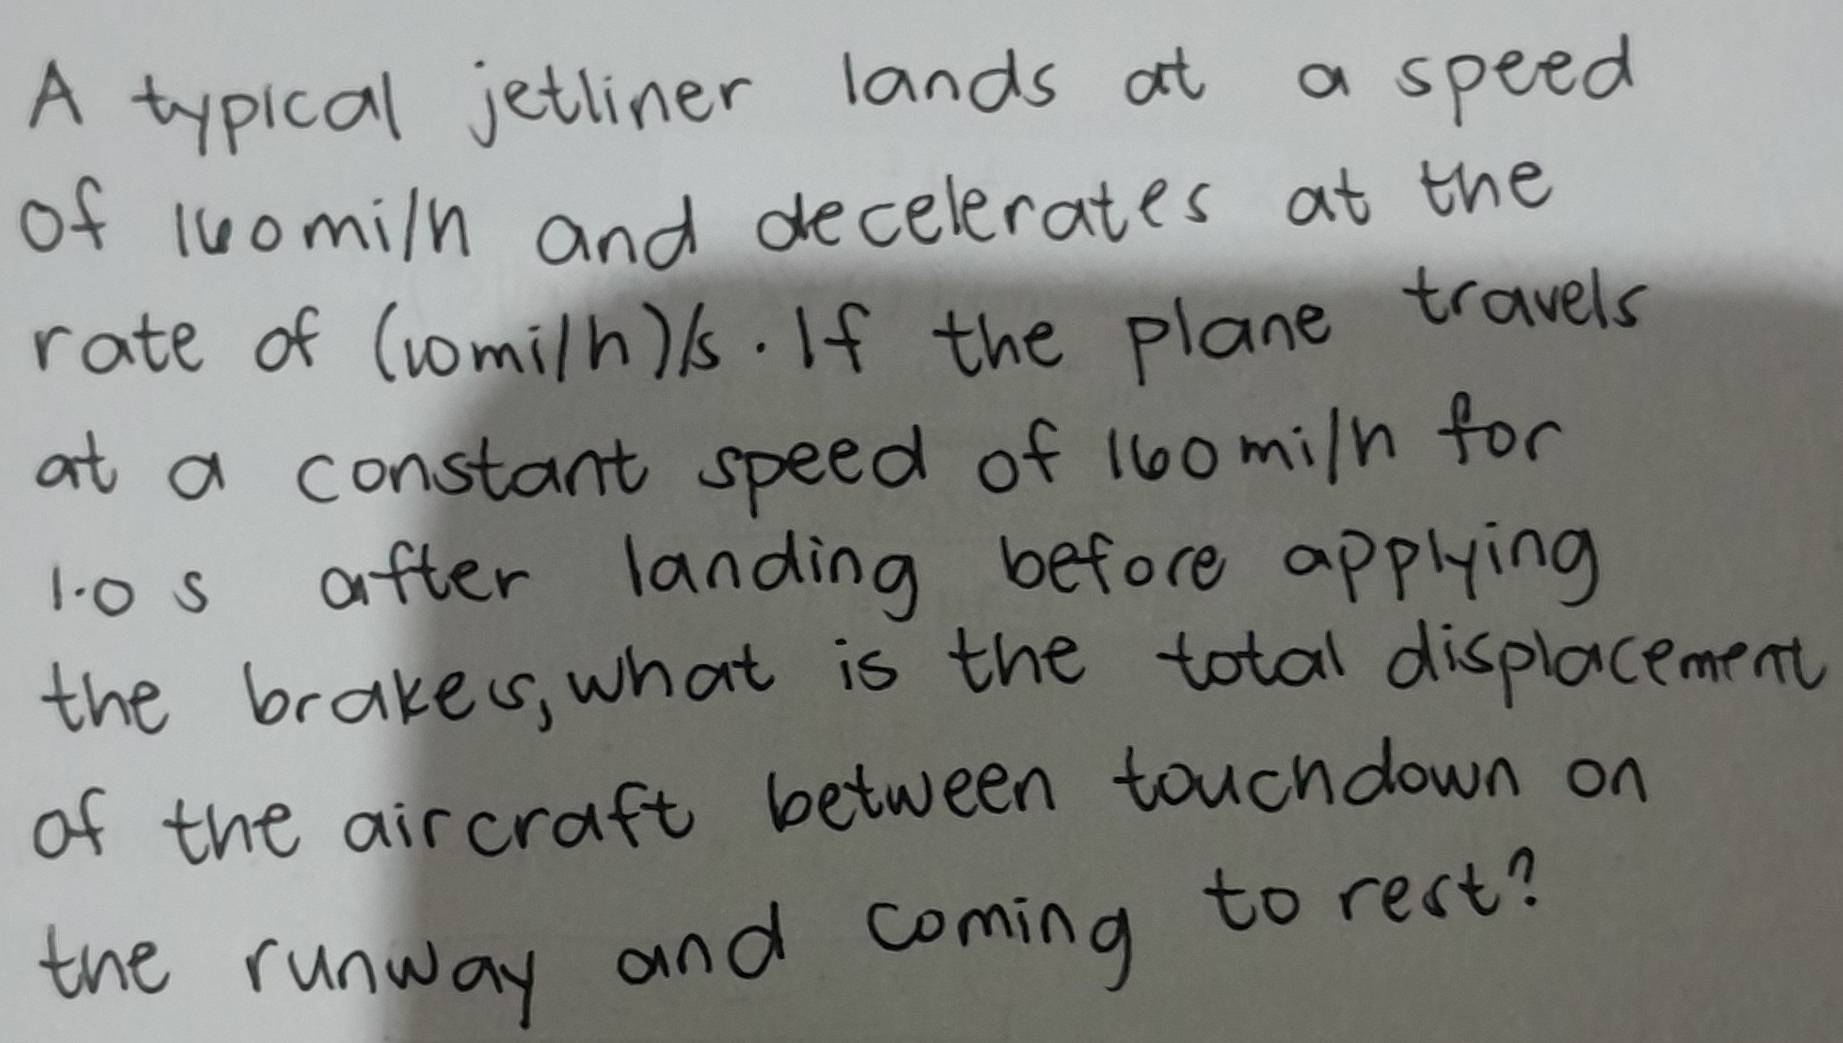 A typical jetliner lands at a speed
of 160mi/h and decelerates at the
rate of (10mi/h)/s. If the plane travels
at a constant speed of 160mi/h for
1.0 s after landing before applying
the brakes, what is the total displacement
of the aircraft between touchdown on
the runway and coming to rest?